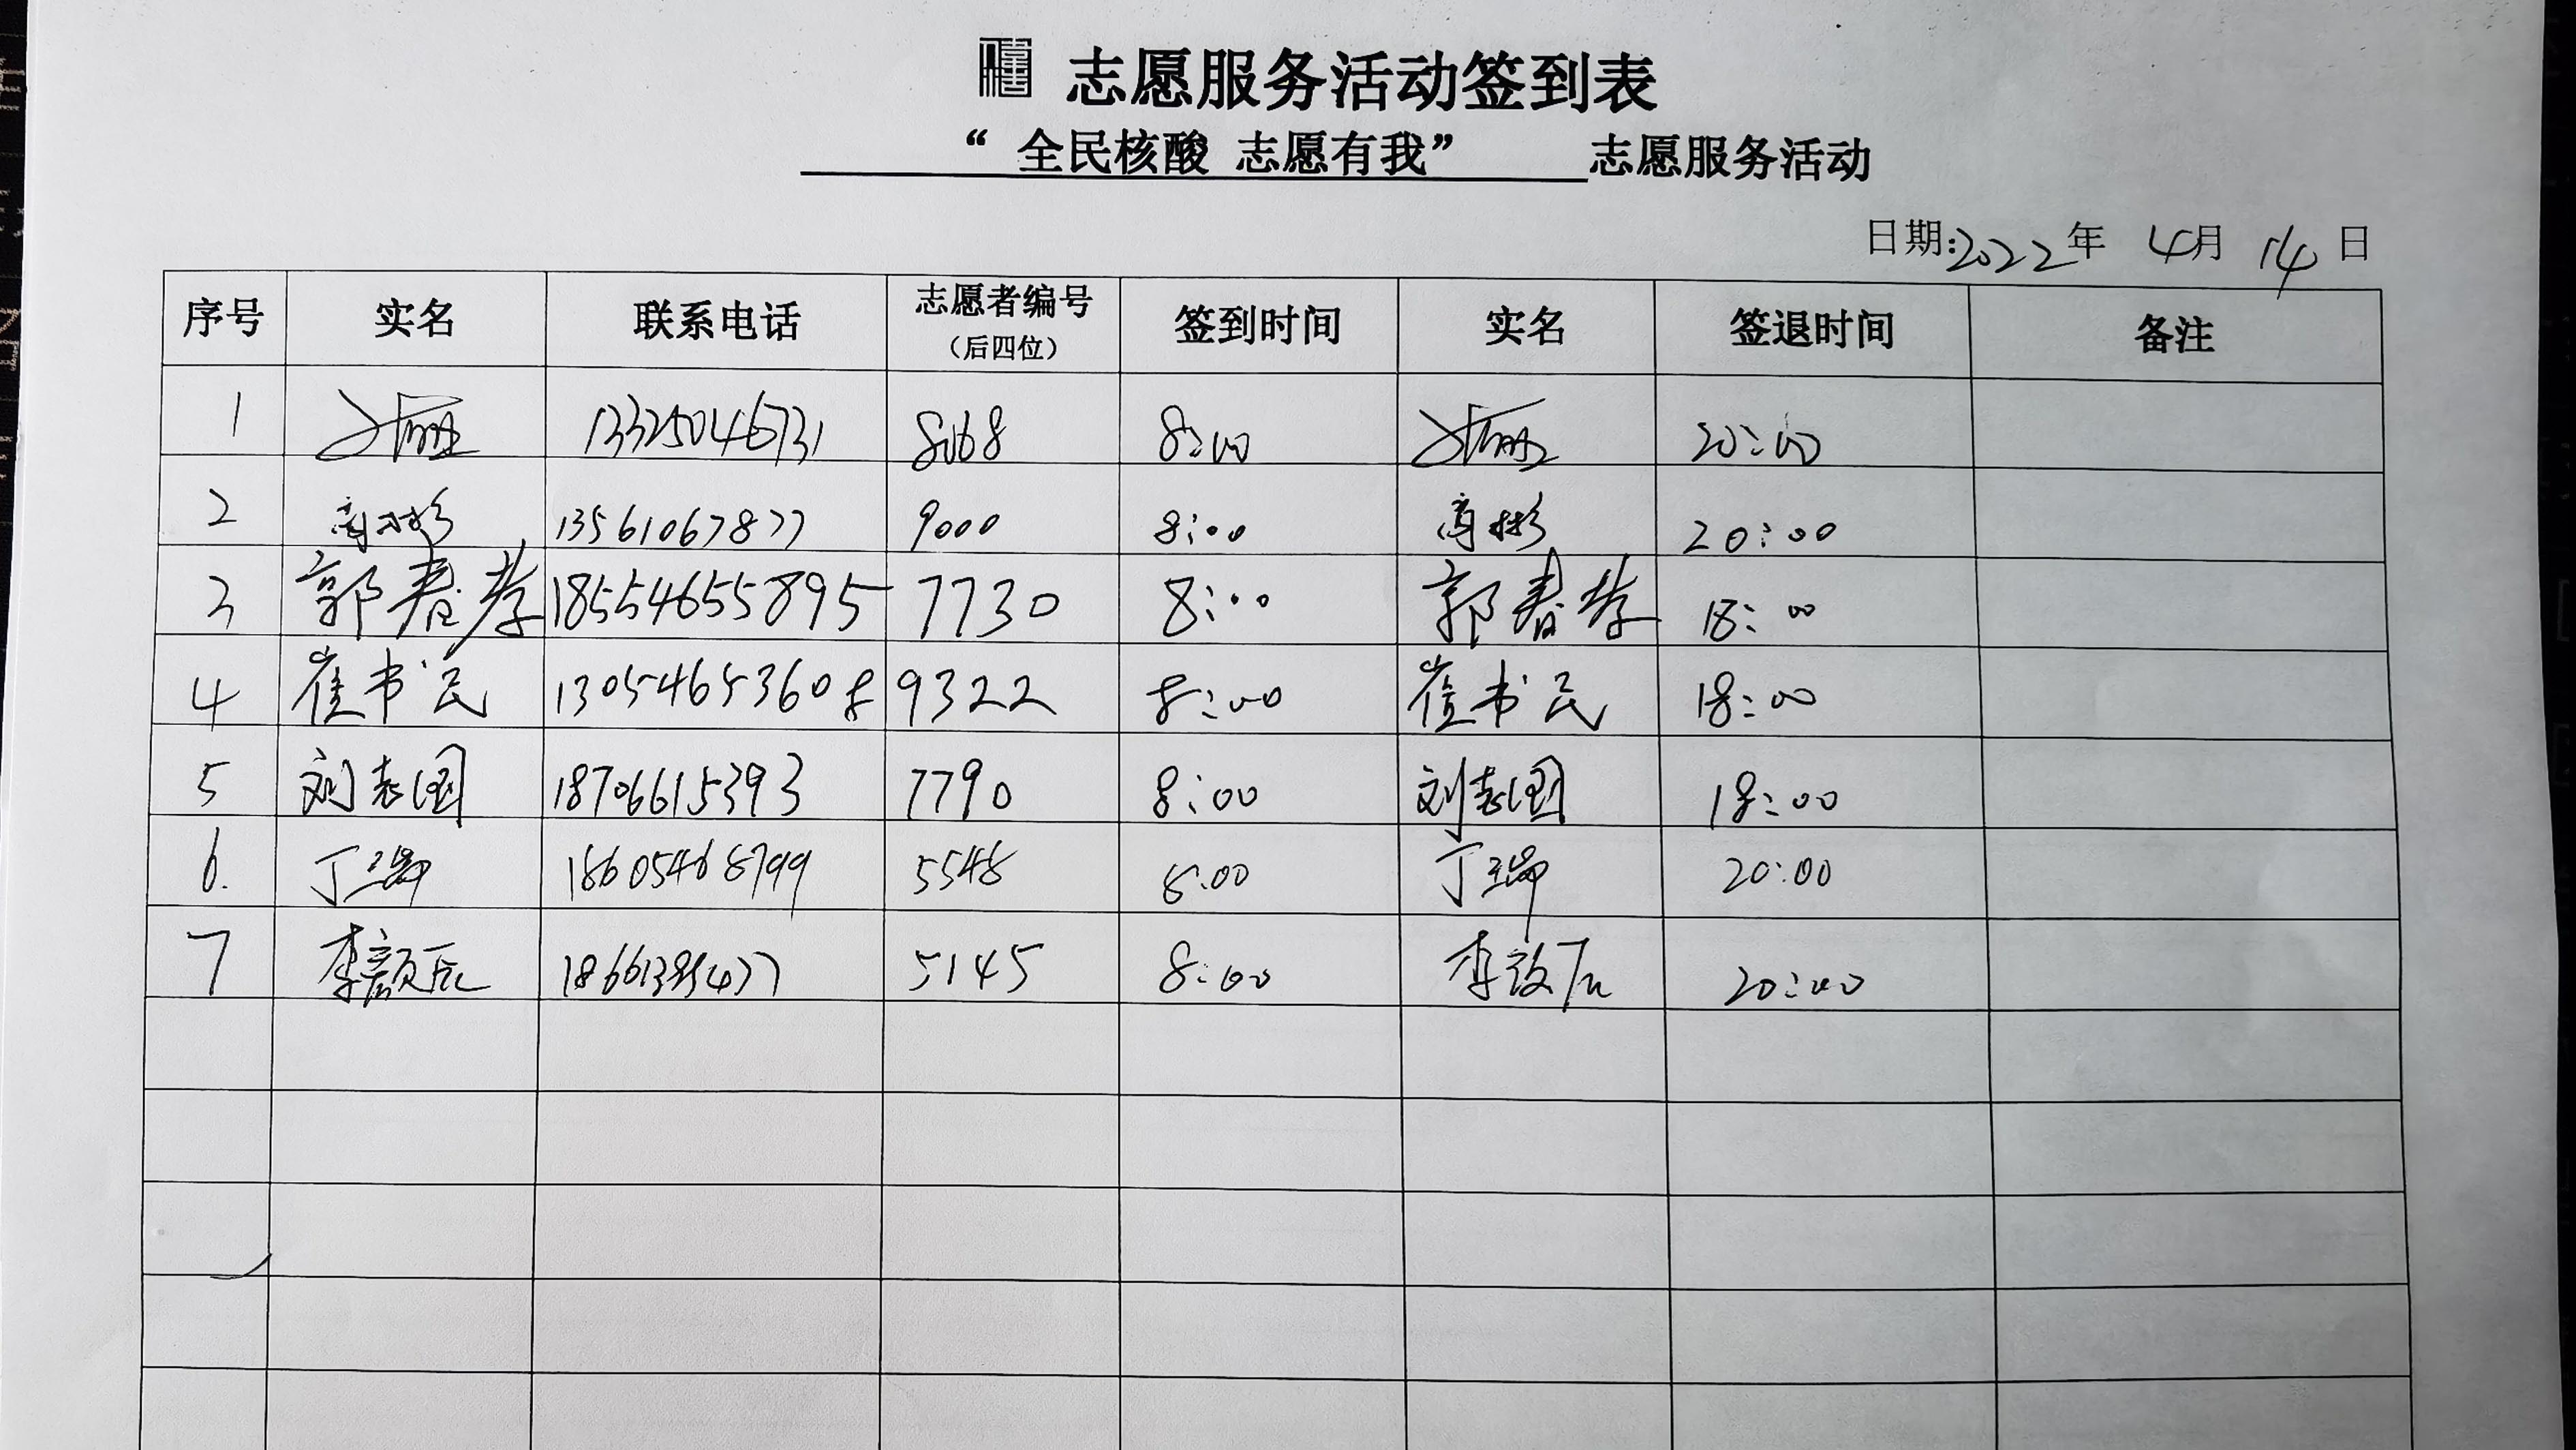 志愿服务活动签到表
“ 全民核酸 志愿有我” 志愿服务活动
日期:2022年 4月 14日
序号 实名 联系电话 志愿者编号（后四位） 签到时间 实名 签退时间 备注
1 13325046731 8068 8:00 20:00
2 高彬 13561067877 9000 8:00 高彬 20:00
3 郭春孝 18554655895 7730 8:00 郭春孝 18:00
4 崔书民 13054653608 9322 8:00 崔书民 18:00
5 刘志国 18706615393 7790 8:00 刘志国 18:00
6. 丁瑞 18605468799 5548 8:00 丁瑞 20:00
7 李 5145 8:00 李 20:00